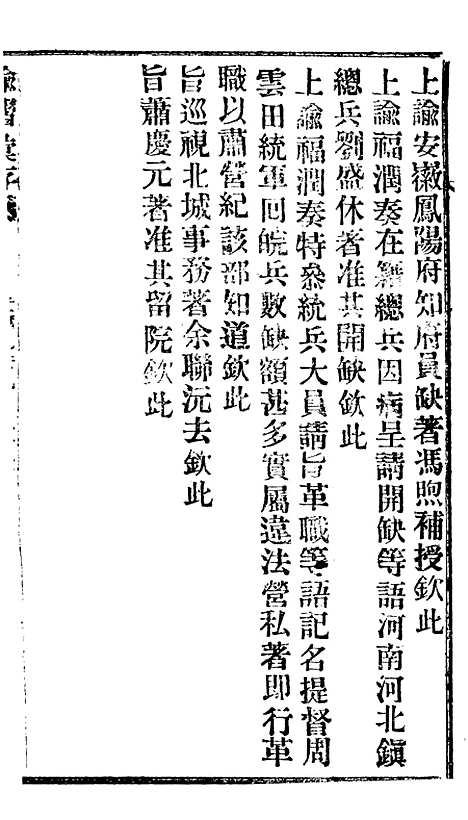 上諭安徽鳳陽府知府員缺著馮煦補授欽此
上諭福潤奏在籍總兵因病呈請開缺等語河南河北鎭
總兵劉盛休著准其開缺欽此
上諭福潤奏特參統兵大員請旨革職等語記名提督周
雲田統軍回皖兵數缺額甚多實屬違法營私著即行革
職以肅營紀該部知道欽此
旨巡視北城事務著余聯沅去欽此
旨蕭慶元著准其留院欽此